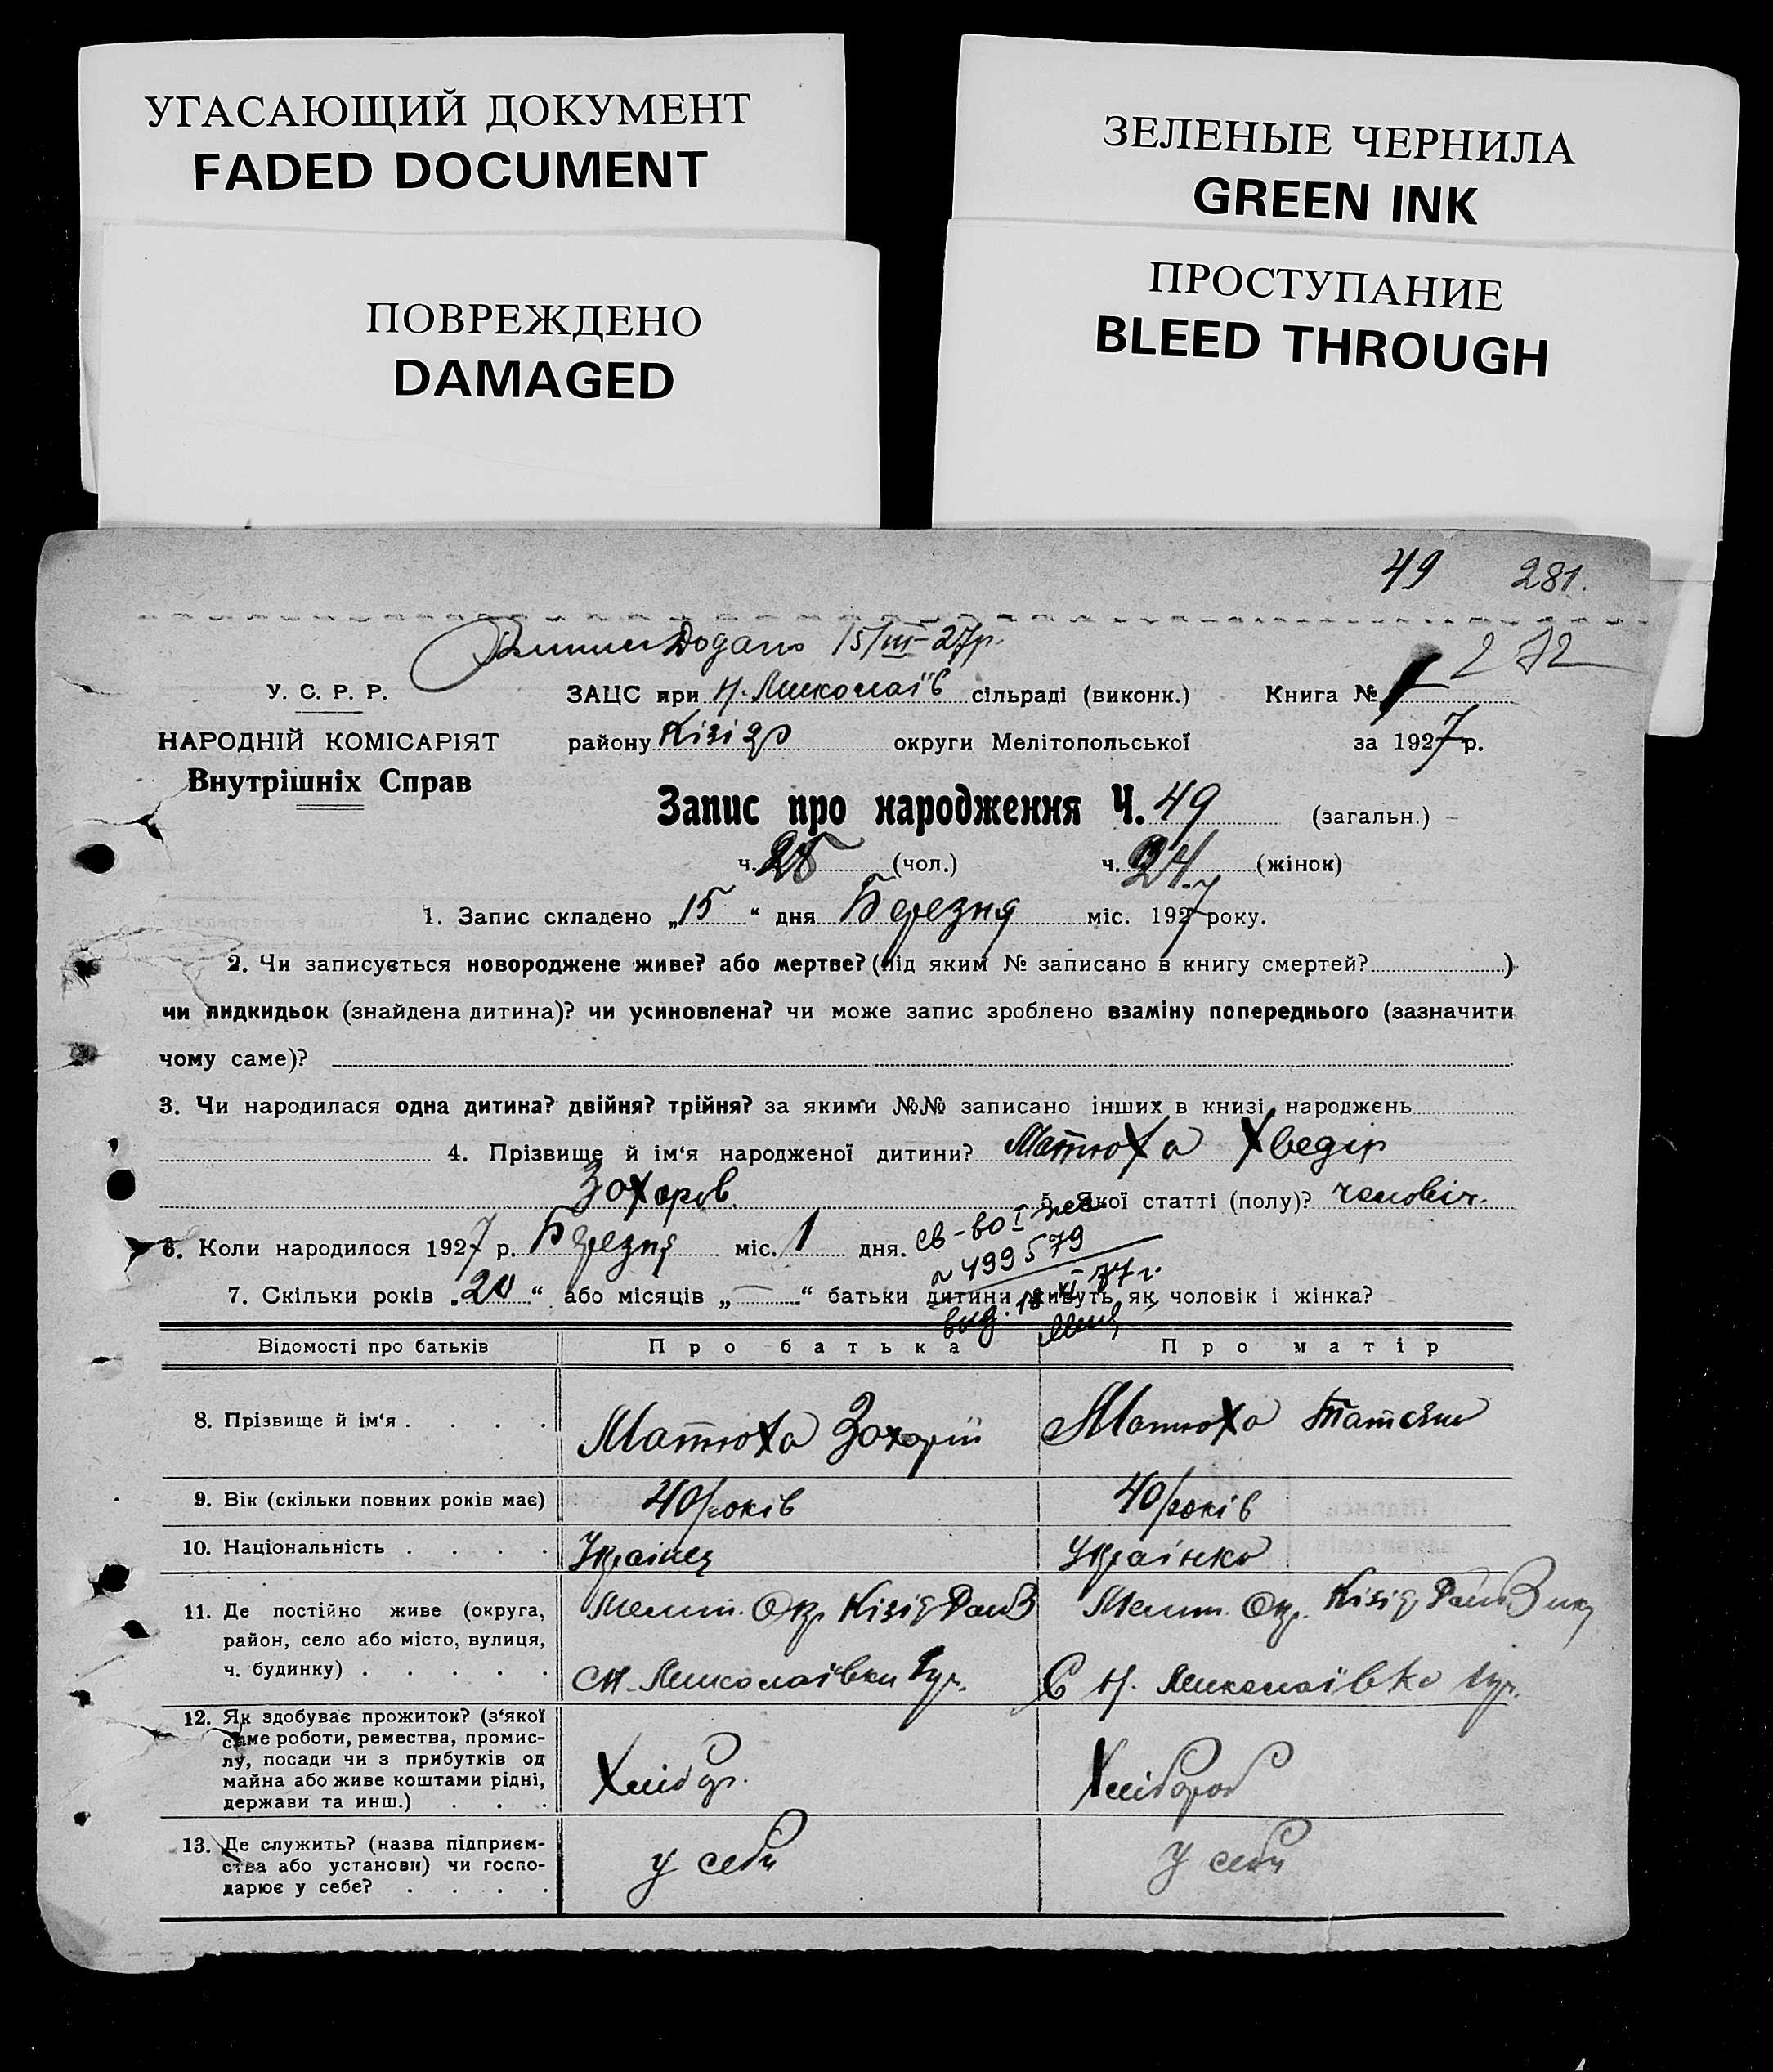 УГАСАЮЩИЙ ДОКУМЕНТ
FADED DOCUMENT
ПОВРЕЖДЕНО
DAMAGED
ЗЕЛЕНЫЕ ЧЕРНИЛА
GREEN INK
ПРОСТУПАНИЕ
BLEED THROUGH
49 281.
Додано 15/III-27р.
272
У. С. Р. Р.
ЗАЦС при Н. Миколаїв сільраді (виконк.) Книга № 1
НАРОДНІЙ КОМІСАРІЯТ
району Кізіяр округи Мелітопольської за 1927 р.
Внутрішніх Справ
Запис про народження Ч. 49 (загальн.)
ч. 25 (чол.) ч. 24 (жінок)
1. Запис складено „15“ дня Березня міс. 1927 року.
2. Чи записується новороджене живе? або мертве? (під яким № записано в книгу смертей? )
чи пидкидьок (знайдена дитина)? чи усиновлена? чи може запис зроблено взаміну попереднього (зазначити
чому саме)?
3. Чи народилася одна дитина? двійня? трійня? за якими №№ записано інших в книзі народжень
4. Прізвище й ім‘я народженої дитини? Матюха Хведір
Захаров. 5. Якої статті (полу)? чоловіч.
6. Коли народилося 1927 р. Березня міс. 1 дня.
св-во I
№ 499579
выд. 18 XI 77 г.
7. Скільки років „20“ або місяців „—“ батьки дитини живуть як чоловік і жінка?
Відомості про батьків Про батька Про матір
8. Прізвище й ім‘я . . . . Матюха Захарій Матюха Татьяна
9. Вік (скільки повних років має) 40 років 40 років
10. Національність . . . . Українец Українка
11. Де постійно живе (округа,
район, село або місто, вулиця,
ч. будинку) . . . . .
Мелит. Окр. Кізіяр
Н. Миколаївки
Мелит. Окр. Кізіяр
С Н. Миколаївка
12. Як здобуває прожиток? (з‘якої
саме роботи, ремества, промис-
лу, посади чи з прибутків од
майна або живе коштами рідні,
держави та инш.) . . .
Хлібор.
Хлібороб
13. Де служить? (назва підприєм-
ства або установи) чи госпо-
дарює у себе? . . . .
у себи
у себи